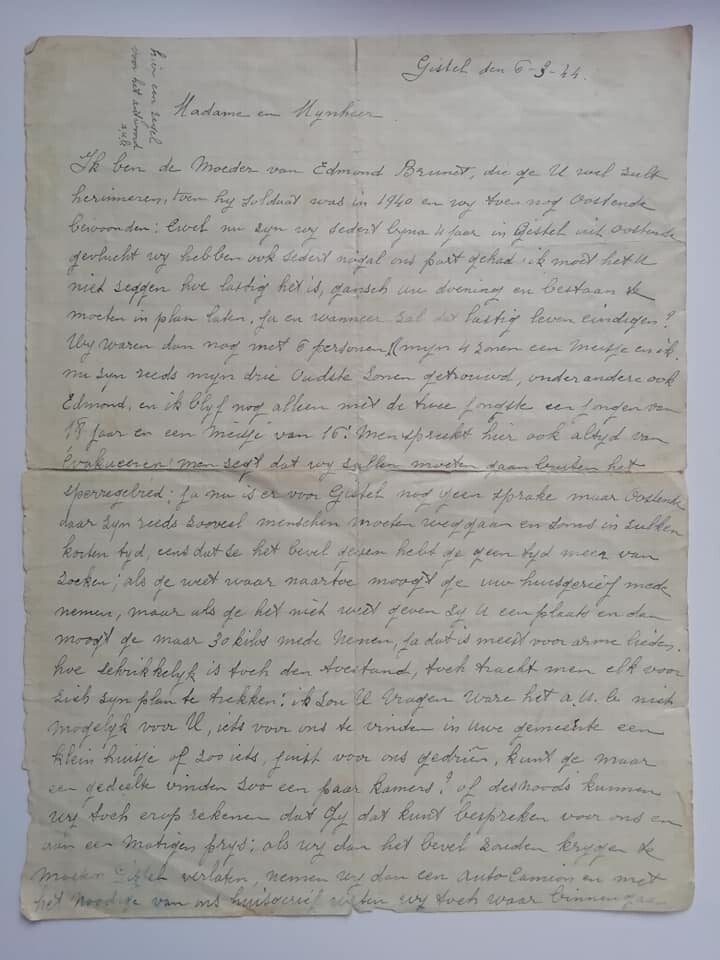 hier een zegel
voor het antwoord
a.u.b
Gistel den 6-3-44.
Madame en Mynheer
Ik ben de Moeder van Edmond Brunet, die ge U wel zult
herinneren, toen hy Soldaat was in 1940 en wy toen nog Oostende
bewoonden: Ewel nu zyn wy sedert byna 4 jaar in Gistel uit Oostende
gevlucht wy hebben ook sedert nogal ons part gehad ik moet het U
niet zeggen hoe lastig het is, gansch uw doening en bestaan te
moeten in plan laten, ja en wanneer zal dat lastig leven eindigen?
Wy waren dan nog met 6 personen, mijn 4 zonen een Meisje en ik.
nu zyn reeds mijn drie Oudste Zonen getrouwd, onder andere ook
Edmond, en ik blyf nog alleen met de twee jongste een jongen van
18 jaar en een Meisje van 16! Men spreekt hier ook altyd van
Evakueeren! men zegt dat wy zullen moeten gaan buiten het
Sperregebied: ja nu is er voor Gistel nog geen sprake maar Oostende
daar zyn reeds zooveel menschen moeten weggaan en soms in zulken
korten tyd, eens dat ze het bevel geven hebt ge geen tyd meer van
Zoeken; als ge weet waar naartoe moogt ge uw huisgerief mede
nemen, maar als ge het niet weet geven zy U een plaats en dan
moogt ge maar 30 kilos mede Nemen, ja dat is meest voor arme lieden.
hoe schrikkelyk is toch den toestand, toch tracht men elk voor
zich zyn plan te trekken! ik zou U Vragen ware het a.u.b. niet
mogelyk voor U, iets voor ons te vinden in uwe gemeente een
klein huisje of zoo iets, juist voor ons gedriën, kunt ge maar
een gedeelte vinden zoo een paar kamers? of desnoods kunnen
wy toch erop rekenen dat Gy dat kunt bespreken voor ons en
aan een Matigen prys; als wy dan het bevel zouden krygen te
moeten Gistel verlaten, nemen wy dan een auto Camion en met
het Noodige van ons huisgerief weten wy toch waar binnengaan